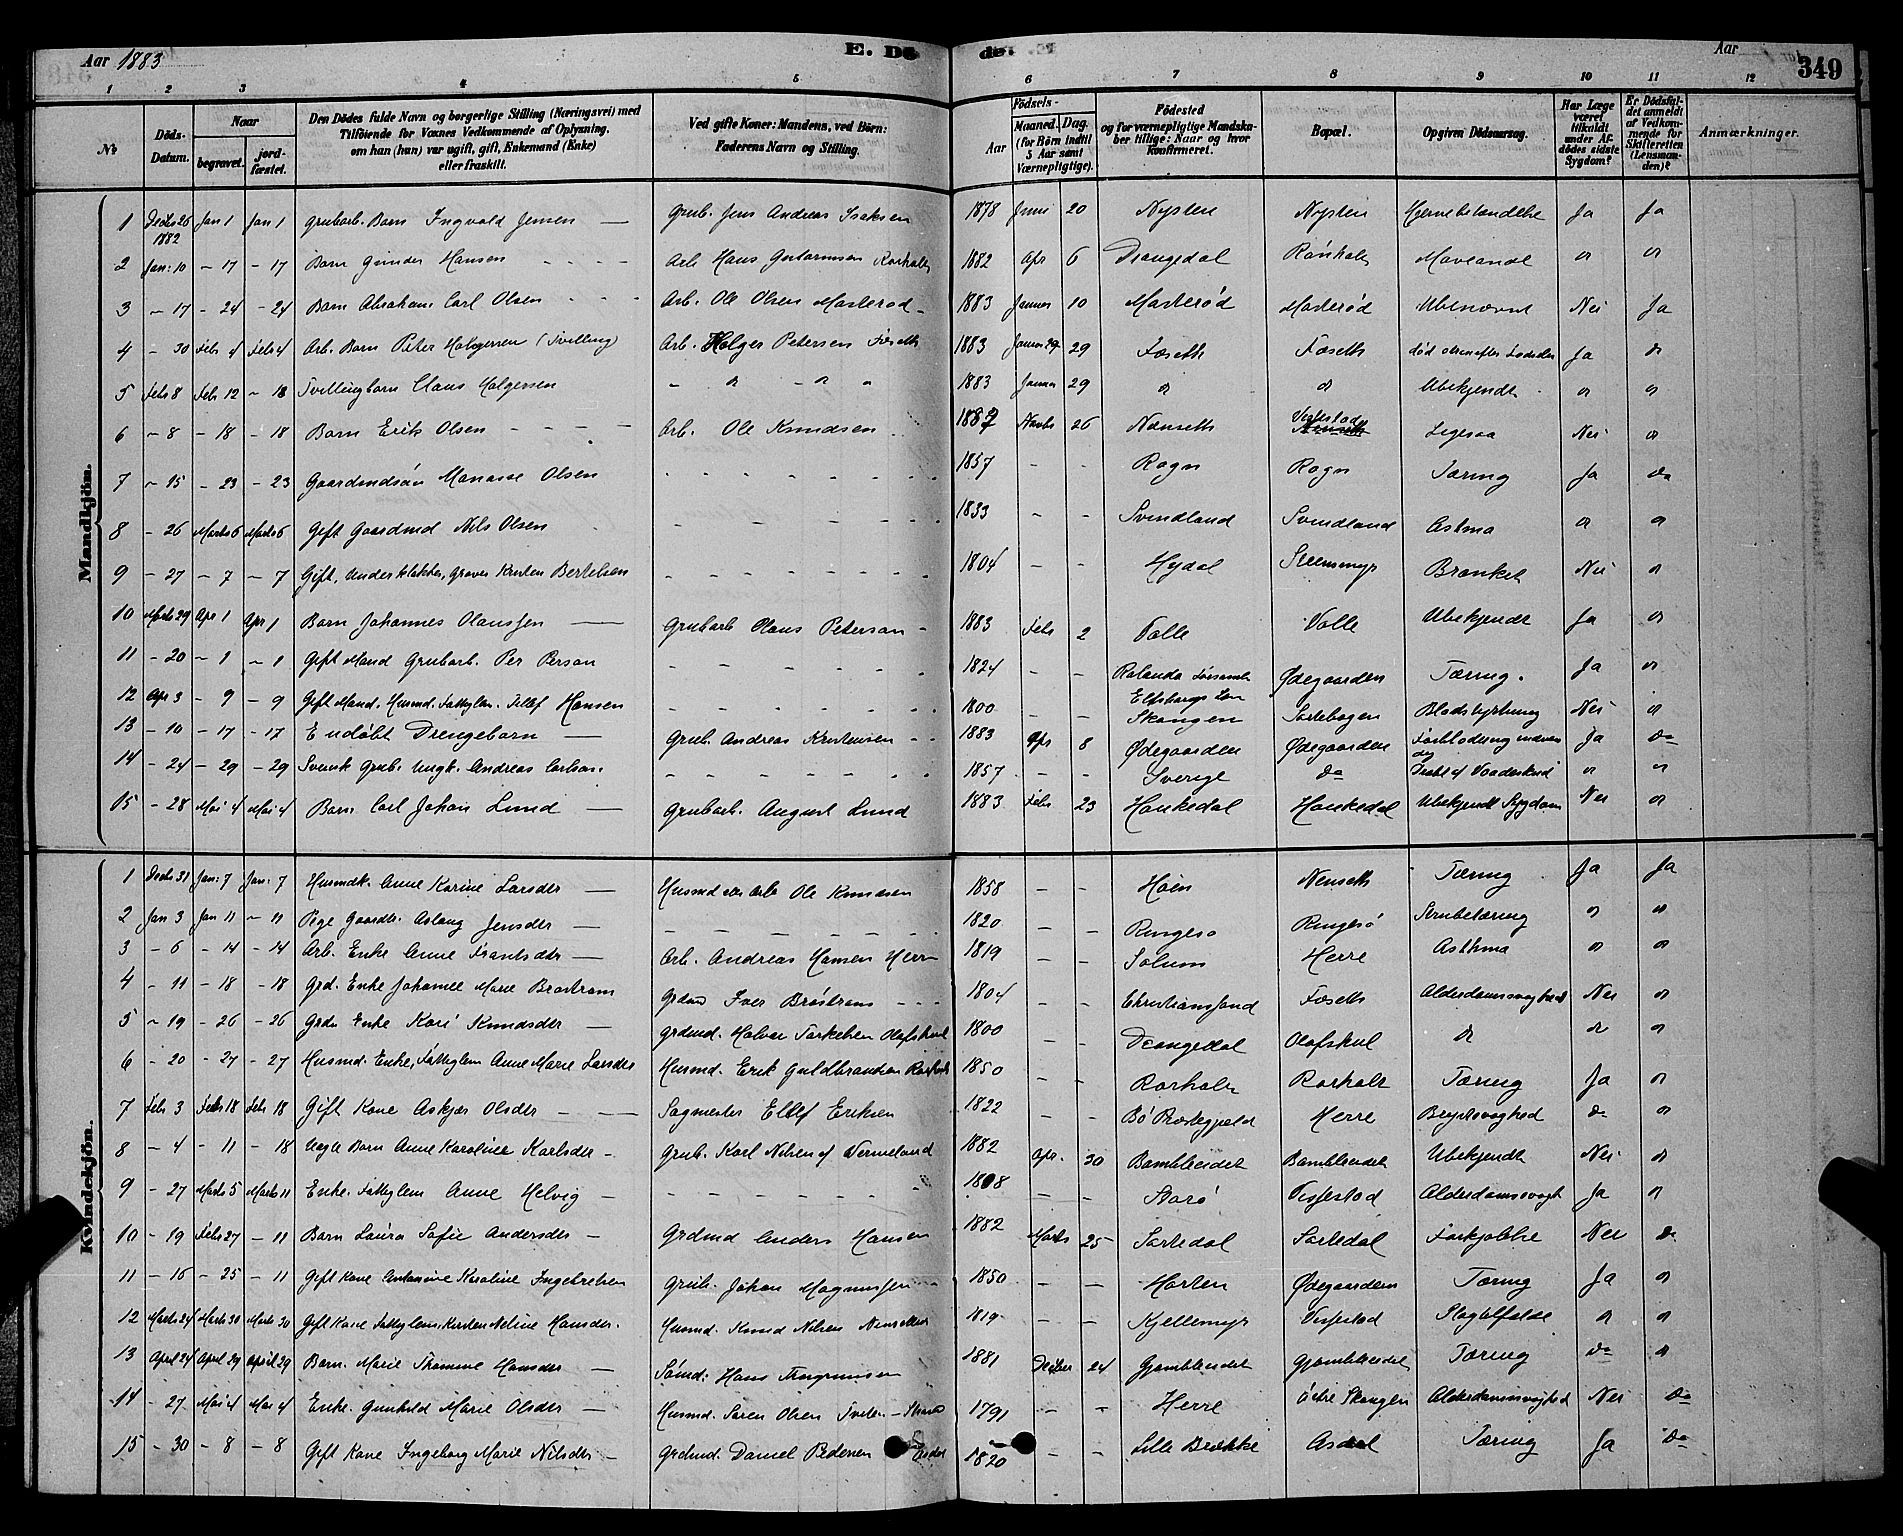 Aar 1883 E. Dö de. Aar 349
1 2 3 4 5 6 7 8 9 10 11 12
No
Döds-Datum.
Naar
begravet. jordfæstet.
Den Dödes fulde Navn og borgerlige Stilling (Næringsvei) med
Tilföiende for Voxnes Vedkommende af Oplysning,
om han (hun) var ugift, gift, Enkemand (Enke)
eller fraskilt.
Ved gifte Koner: Mandens, ved Börn:
Faderens Navn og Stilling.
Födsels-
Aar Maaned. Dag.
(for Börn indtil
5 Aar samt
Værnepligtige).
Födested
og for værnepligtige Mandska-
ber tillige: Naar og hvor
Konfirmeret.
Bopæl.
Opgiven Dödsaarsag.
Har Læge
været
tilkaldt
under Af-
dödes sidste
Sygdom?
Er Dödsfal-
det anmeldt
af Vedkom-
mende for
Skifteretten
(Lensman-
den)?
Anmærkninger.
Mandkjön.
1 Decbr 26 1882 Jan 1 Jan 1 Grubarb. Barn Ingvald Jensen — Grub. Jens Andreas Isaksen 1878 Juni 20 Nysten Nysten Hjernebetændelse Ja Ja
2 Jan: 10 - 17 - 17 Barn Gunder Hansen Arb Hans Rørholt 1882 Apr 6 Drangedal Rørholt do do
3 - 17 - 24 - 24 Barn Abraham Carl Olsen Arb. Ole Olsen Masterød 1883 Januar 10 Masterød Masterød Ubenævnt Nei Ja
4 - 30 Feb 4 Feb 4 Arb. Barn Peter Holgersen (Tvilling) Arb. Holger Petersen Foseth 1883 Januar 29 29 Foseth Foseth død strax efter Fødselen Ja do
5 Feb 8 Feb 12 - 18 Tvillingbarn Claus Holgersen - do - do 1883 Januar 29 do do Ubekjendt do do
6 - 8 - 18 - 18 Barn Erik Olsen Arb. Ole Knudsen 1882 Novbr 26 Nenseth Nei do
7 - 15 - 23 - 23 Gaardmdsön Manasse Olsen 1857 - - Rogn Rogn Tæring Ja do
8 - 26 Marts 6 Marts 6 Gift Gaardmd Nils Olsen 1833 - - Svindland Svindland Astma do do
9 - 27 - 7 - 7 Gift, Underklokker, Graver Bertelsen 1804 - - Hydal Steensmyr Nei do
10 Marts 29 Apr 1 Apr 1 Barn Johannes Olaussen — Grubarb Olaus Peterson 1883 Feb 2 Valle Valle Ubekjendt Ja do
11 - 20 - 1 - 1 Gift Mand Grubarb. Per Person 1824 - - Elfsborgs Len Ødegaarden Tæring. Ja do
12 Apr 3 - 9 - 9 Gift Mand. Husmd. Fattiglem. Tellef Hansen 1800 - - Skougen Sortebogen Nei do
13 - 10 - 17 - 17 E udøbt Drengebarn — Grub. Andreas Kristensen 1883 Apr 8 Ødegaarden Ødegaarden Forblødning Ja do
14 - 24 - 29 - 29 Svensk Grub. Ungk. Andreas Carlson 1857 - - Sverige do Vaadeskud do do
15 - 28 Mai 4 Mai 4 Barn Carl Johan Lund — Grubarb. August Lund 1883 Feb 23 Haukedal Haukedal Ubekjendt Sygdom Nei do
Kvindekjön.
1 Decbr 31 Jan: 7 Jan: 7 Husmdk. Anne Karine Larsdtr — Husmd Ole Knudsen 1858 - - Höen Nenseth Tæring Ja Ja
2 Jan 3 Jan 11 - 11 Pige Gaarddtr. Aslaug Jensdtr — 1820 - - Ringesø Ringesø Strubetæring do do
3 - 6 - 14 - 14 Arb. Enke Anne Frantsdtr — Arb. Andreas Hansen Herre 1819 - - Solum Herre Asthma do do
4 - 11 - 18 - 18 Grd. Enke Johanne Marie Broström Grdmd Iver Broström 1804 - - Christiansand Foseth Alderdomssvaghed Nei do
5 - 19 - 26 - 26 Grdm Enke Kari Knudsdtr — Grdmd. Halvor Torkelsen Olafskul 1800 - - Drangedal Olafskul do do do
6 - 20 - 27 - 27 Husmd. Enke, Fattiglem Anne Marie Larsdtr Husmd. Erik Guldbrandsen Rørholt 1850 - - Rørholt Rørholt Tæring Ja do
7 Feb 3 Feb 18 Feb 18 Gift Kone Askjær Olsdtr Sagmester Ellef Eriksen 1822 - - Bö Præstegjæld Herre Brystsvaghed do do
8 - 4 - 11 - 18 Uægte Barn Anne Karoline Karlsdtr - Grub. Karl Nilsen af Vermeland 1882 Apr. 30 Bambleeidet Bambleeidet Ubekjendt Nei do
9 - 27 Marts 5 Marts 11 Enke. Fattiglem Anne Helvig - 1808 - - Vissestad Alderdomssvagh Ja do
10 - 19 Feb 27 - 11 Barn Laura Sofie Andersdtr - Grdmd Anders Hansen 1882 Marts 25 Sortedal Sortedal Forkjølelse Nei do
11 - 16 - 25 - 11 Gift Kone Antonine Karoline Ingebretsen Grub. Johan Magnussen 1850 - - Horten Ødegaarden Tæring Ja do
12 Marts 24 Marts 30 Marts 30 Gift Kone Fattiglem, Kirsten Neline Hansdtr. Husmd. Knud Nilsen 1819 - - Kjellemyr Vissestad Slagtilfælde do do
13 April 24 April 29 April 29 Barn. Marie Thomine Hansdtr — Sömd: Hans 1881 Decbr 24 Gjømleeidet Gjømleeidet Tæring do do
14 - 27 Mai 4 Mai 4 Enke. Gunhild Marie Olsdtr — Husmd. Søren Olsen Tveten 1791 - - Herre Østre Skougen Alderdomssvaghed Nei do
15 - 30 - 8 - 8 Gift Kone Ingeborg Marie Nilsdtr - Grdmd. Daniel Pedersen Asdal 1820 - - Lille Brække Asdal Tæring Ja do